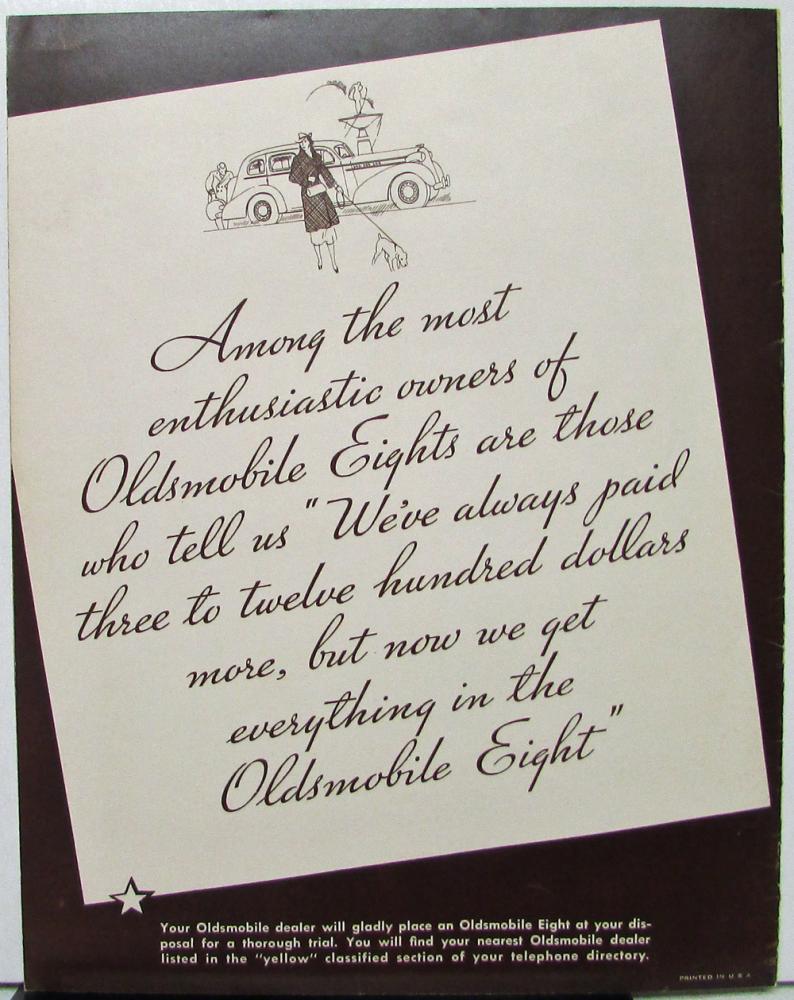 Among the most
enthusiastic owners of
Oldsmobile Eights are those
who tell us "We've always paid
three to twelve hundred dollars
more, but now we get
everything in the
Oldsmobile Eight"
Your Oldsmobile dealer will gladly place an Oldsmobile Eight at your dis-
posal for a thorough trial. You will find your nearest Oldsmobile dealer
listed in the "yellow" classified section of your telephone directory.
PRINTED IN U. S. A.